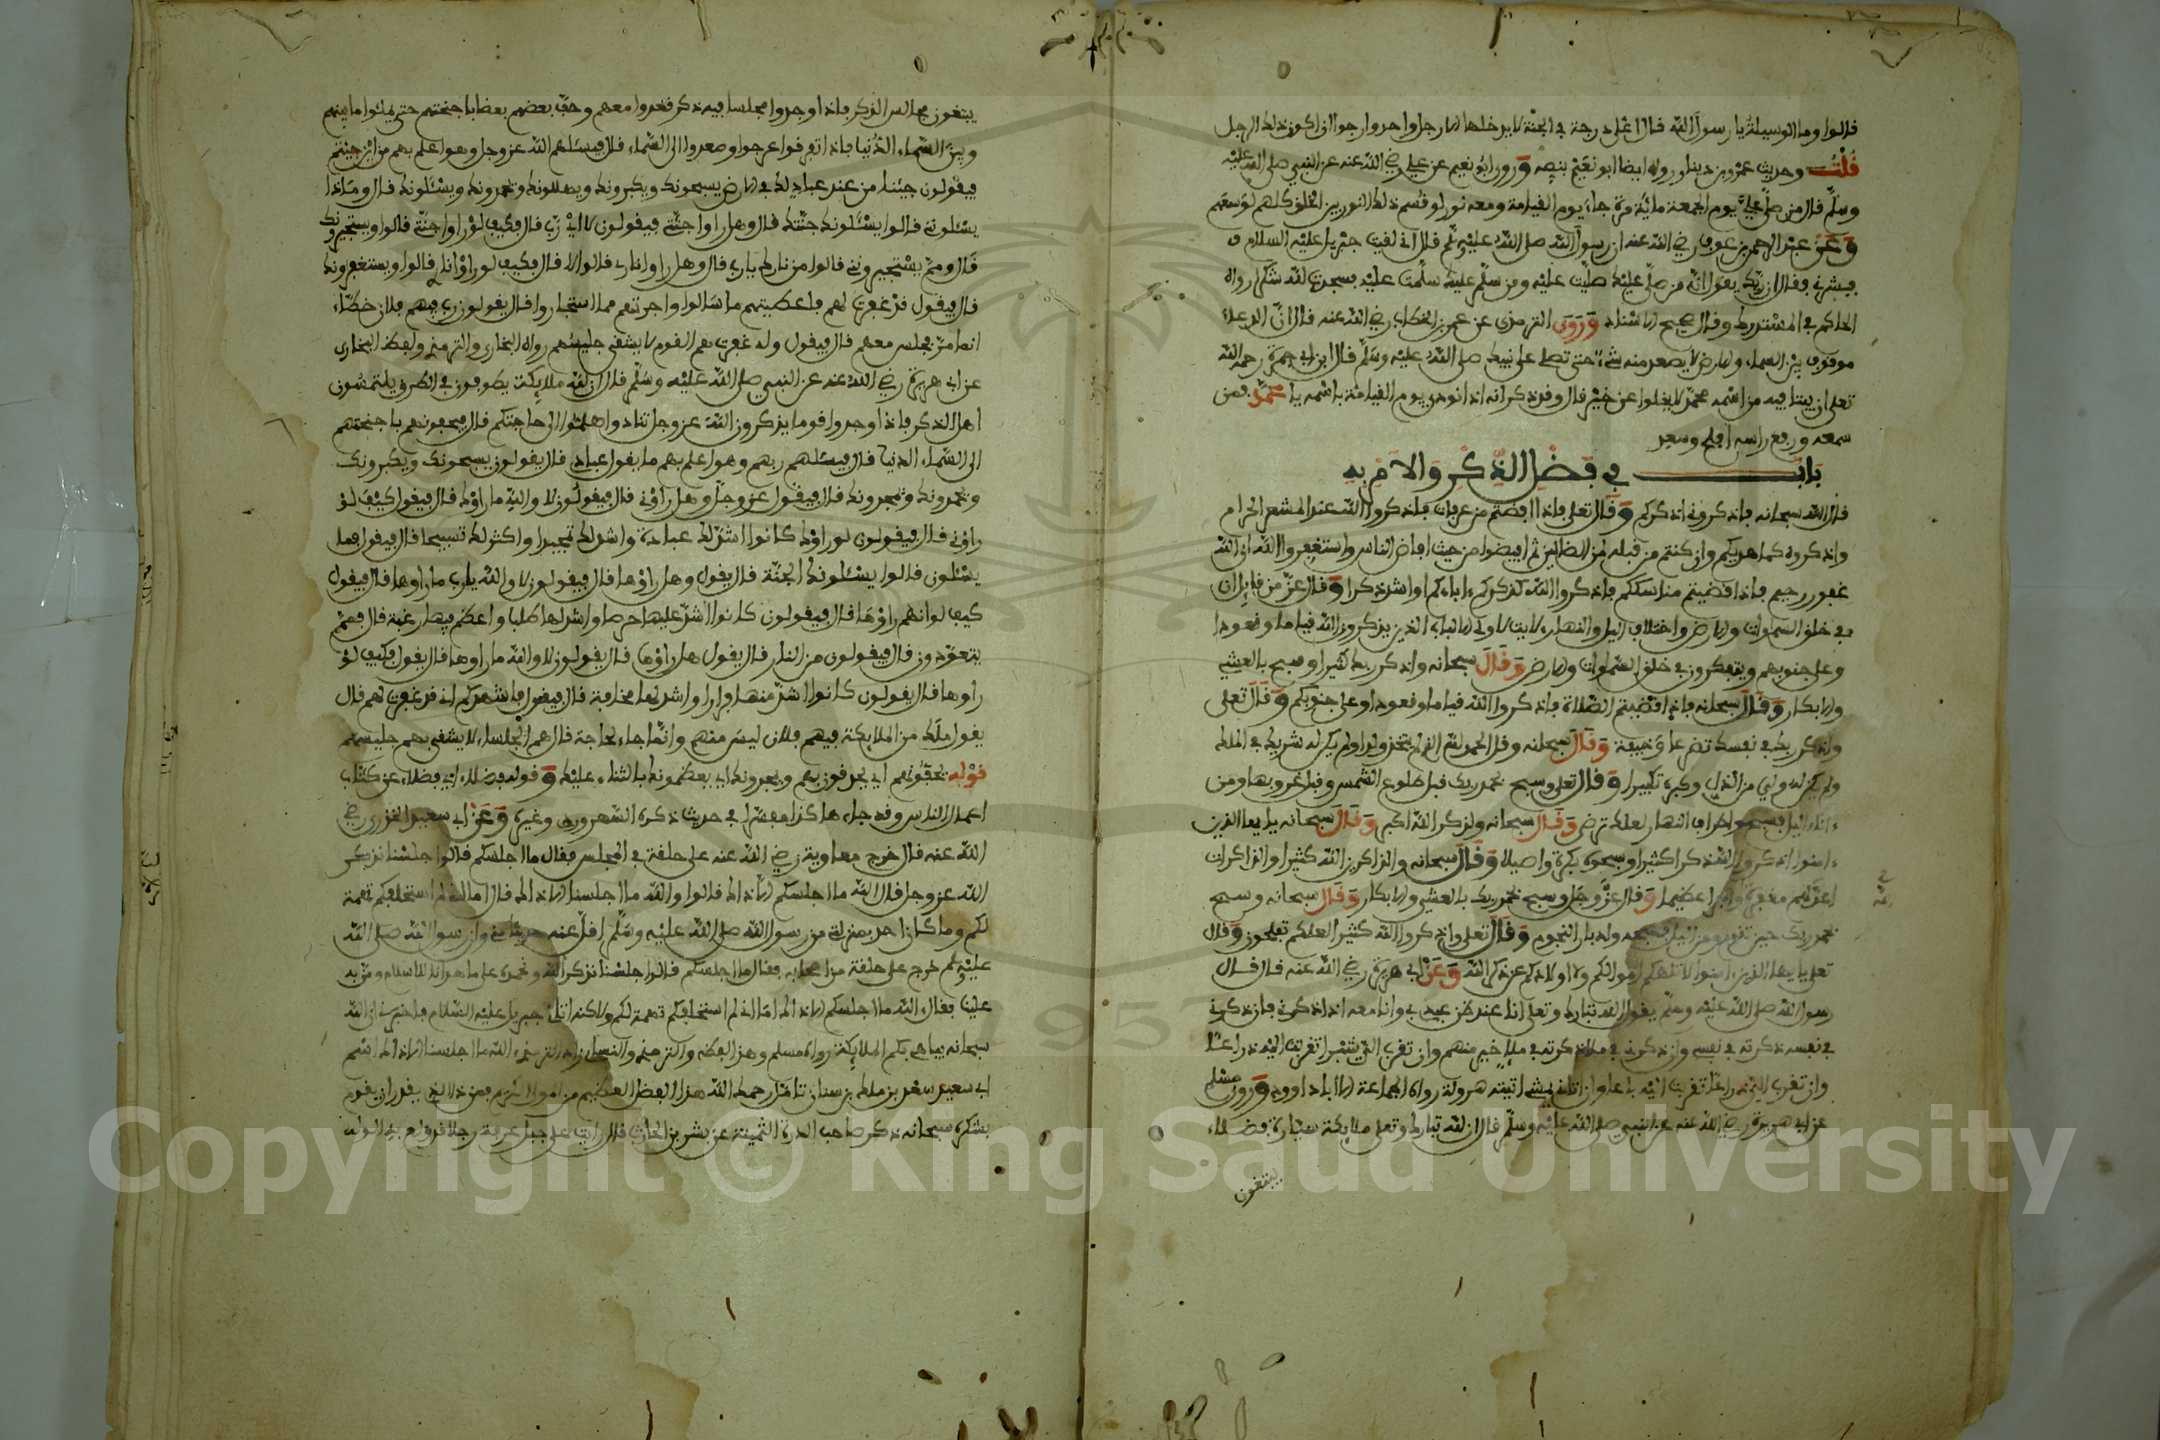 قالوا وما الوسيلة يا رسول الله قال اعلا درجة في الجنة لا يدخلها الا رجل واحد وارجوا ان اكون ذلك الرجل
قلت وحديث عمرو بن دينار رواه ايضا ابو نعيم بنصه وروى ابو نعيم عن علي رضي الله عنه عن النبي صلى الله عليه
وسلم قال من صلى علي يوم الجمعة مائة مرة جاء يوم القيامة ومعه نور لو قسم ذلك النور بين الخلق كلهم لوسعهم
وعن عبد الرحمن بن عوف رضي الله عنه ان رسول الله صلى الله عليه وسلم قال اني لقيت جبريل عليه السلام
فبشرني فقال ان ربك يقول انه من صلى عليك صليت عليه ومن سلم عليك سلمت عليه فسجدت لله شكرا رواه
الحاكم في المستدرك وقال صحيح الاسناد وروى الترمذي عن عمر بن الخطاب رضي الله عنه قال ان الدعاء
موقوف بين السماء والارض لا يصعد منه شيء حتى تصلي على نبيك صلى الله عليه وسلم قال ابن ابي جمرة رحمه الله
تعلى ان بيتا فيه من اسمه محمد لا يخلوا عن خير قال وقد ذكر انه اذا نودي يوم القيامة باسمه يا محمد فمن
سمعه ورفع راسه افلح وسعد
باب في فضل الذكر والامر به
قال الله سبحانه فاذكروني اذكركم وقال تعلى فاذا افضتم من عرفات فاذكروا الله عند المشعر الحرام
واذكروه كما هديكم وان كنتم من قبله لمن الضالين ثم افيضوا من حيث افاض الناس واستغفروا الله ان الله
غفور رحيم فاذا قضيتم مناسككم فاذكروا الله كذكركم ءاباءكم او اشد ذكرا وقال عز من قايل ان
في خلق السموات والارض واختلاف اليل والنهار لايت لاولي الالباب الذين يذكرون الله قياما وقعودا
وعلى جنوبهم ويتفكرون في خلق السموات والارض وقال سبحانه واذكر ربك كثيرا وسبح بالعشي
والابكار وقال سبحانه فاذا قضيتم الصلاة فاذكروا الله قياما وقعودا وعلى جنوبكم وقال تعلى
واذكر ربك في نفسك تضرعا وخيفة وقال سبحانه وقل الحمد لله الذي لم يتخذ ولدا ولم يكن له شريك في الملك
ولم يكن له ولي من الذل وكبره تكبيرا وقال تعلى وسبح بحمد ربك قبل طلوع الشمس وقبل غروبها ومن
ءاناء اليل فسبح واطراف النهار لعلك ترضى وقال سبحانه ولذكر الله اكبر وقال سبحانه يا ايها الذين
ءامنوا اذكروا الله ذكرا كثيرا وسبحوه بكرة واصيلا وقال سبحانه والذاكرين الله كثيرا والذاكرات
اعد لهم مغفرة واجرا عظيما وقال عز وجل وسبح بحمد ربك بالعشي والابكار وقال سبحانه وسبح
بحمد ربك حين تقوم ومن اليل فسبحه وادبار النجوم وقال تعلى واذكروا الله كثيرا لعلكم تفلحون وقال
تعلى يا ايها الذين ءامنوا لا تلهكم اموالكم ولا اولادكم عن ذكر الله وعن ابي هريرة رضي الله عنه قال قال
رسول الله صلى الله عليه وسلم يقول الله تبارك وتعلى انا عند ظن عبدي بي وانا معه اذا ذكرني فان ذكرني
في نفسه ذكرته في نفسي وان ذكرني في ملإ ذكرته في ملإ خير منهم وان تقرب الي شبرا تقربت اليه ذراعا
وان تقرب الي ذراعا تقربت اليه باعا وان اتاني يمشي اتيته هرولة رواه الجماعة الا ابا داوود وروى مسلم
عن ابي هريرة رضي الله عنه عن النبي صلى الله عليه وسلم قال ان لله تبارك وتعلى ملايكة سيارة فضلاء
يبتغون
يبتغون مجالس الذكر فاذا وجدوا مجلسا فيه ذكر قعدوا معهم وحف بعضهم بعضا باجنحتهم حتى يملئوا ما بينهم
وبين السماء الدنيا فاذا تفرقوا عرجوا وصعدوا الى السماء قال فيسئلهم الله عز وجل وهو اعلم بهم من اين جيتم
فيقولون جئنا من عند عباد لك في الارض يسبحونك ويكبرونك ويهللونك ويحمدونك ويسئلونك قال وماذا
يسئلوني قالوا يسئلونك جنتك قال وهل راوا جنتي فيقولون لا اي رب قال فكيف لو راوا جنتي قالوا ويستجيرونك
قال ومم يستجيرونني قالوا من نارك يا رب قال وهل راوا ناري قالوا لا قال فكيف لو راوا ناري قالوا ويستغفرونك
قال فيقول قد غفرت لهم فاعطيتهم ما سالوا واجرتهم مما استجاروا قال يقولون رب فيهم فلان خطاء
انما مر فجلس معهم قال فيقول وله غفرت هم القوم لا يشقى جليسهم رواه البخاري والترمذي ولفظ البخاري
عن ابي هريرة رضي الله عنه عن النبي صلى الله عليه وسلم قال ان لله ملايكة يطوفون في الطرق يلتمسون
اهل الذكر فاذا وجدوا قوما يذكرون الله عز وجل تنادوا هلموا الى حاجتكم قال فيحفونهم باجنحتهم
الى السماء الدنيا قال فيسئلهم ربهم وهو اعلم بهم ما يقول عبادي قال يقولون يسبحونك ويكبرونك
ويحمدونك ويمجدونك قال فيقول عز وجل وهل راوني قال فيقولون لا والله ما راوك قال فيقول كيف لو
راوني قال فيقولون لو راوك كانوا اشد لك عبادة واشد لك تمجيدا واكثر لك تسبيحا قال فيقول فما
يسئلون قالوا يسئلونك الجنة قال يقول وهل راوها قال فيقولون لا والله يا رب ما راوها قال فيقول
كيف لو انهم راوها قال فيقولون كانوا اشد عليها حرصا واشد لها طلبا واعظم فيها رغبة قال فمم
يتعوذون قال فيقولون من النار قال يقول هل راوها قال يقولون لا والله ما راوها قال يقول فكيف لو
راوها قال يقولون كانوا اشد منها فرارا واشد لها مخافة قال فيقول فاشهدكم اني قد غفرت لهم قال
يقول ملك من الملايكة فيهم فلان ليس منهم وانما جاء لحاجة قال هم الجلساء لا يشقى بهم جليسهم
قوله يحفونهم اي يحدقون بهم ويمجدونك اي يعظمونك بالثناء عليك وقوله فضلاء اي فضلاء عن كتاب
اعمال الناس وقد جاء هاكذا مفسرا في حديث ذكره السهروردي وغيره وعن ابي سعيد الخدري رضي
الله عنه قال خرج معاوية رضي الله عنه على حلقة في المجلس فقال ما اجلسكم قالوا جلسنا نذكر
الله عز وجل قال الله ما اجلسكم الا ذاك قالوا والله ما اجلسنا الا ذاك قال اما اني لم استحلفكم تهمة
لكم وما كان احد بمنزلتي من رسول الله صلى الله عليه وسلم اقل عنه حديثا مني وان رسول الله صلى الله
عليه وسلم خرج على حلقة من اصحابه فقال ما اجلسكم قالوا جلسنا نذكر الله ونحمده على ما هدانا للاسلام ومن به
علينا فقال الله ما اجلسكم الا ذاك اما اني لم استحلفكم تهمة لكم ولاكنه اتاني جبريل عليه السلام فاخبرني ان الله
سبحانه يباهي بكم الملايكة رواه مسلم وهذا لفظه والترمذي والنسائي زاد الترمذي الله ما اجلسنا الا ذاك اسم
ابي سعيد سعد بن ملك بن سنان تامل رحمك الله هذا الفضل العظيم من المولى الكريم فمن ذا الذي يقدر ان يقوم
بشكره سبحانه ذكر صاحب الدرة الثمينة عن بشر بن الحارث قال رايت على جبل عرفة رجلا قد ولع به الوله
Copyright © King Saud University
1957